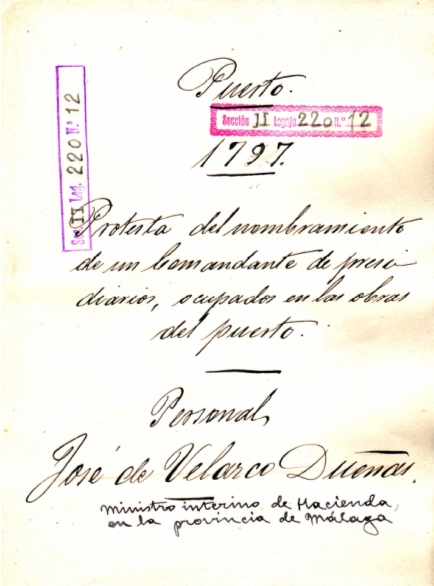 Puerto.
Sección II Legajo 220 N.º 12
Sec. II Leg. 220 N.º 12
1797.
Protesta del nombramiento
de un Comandante de presi
diarios, ocupados en las obras
del puerto.
Personal
José de Velarco Dueñas.
ministro interino de Hacienda,
en la provincia de Málaga